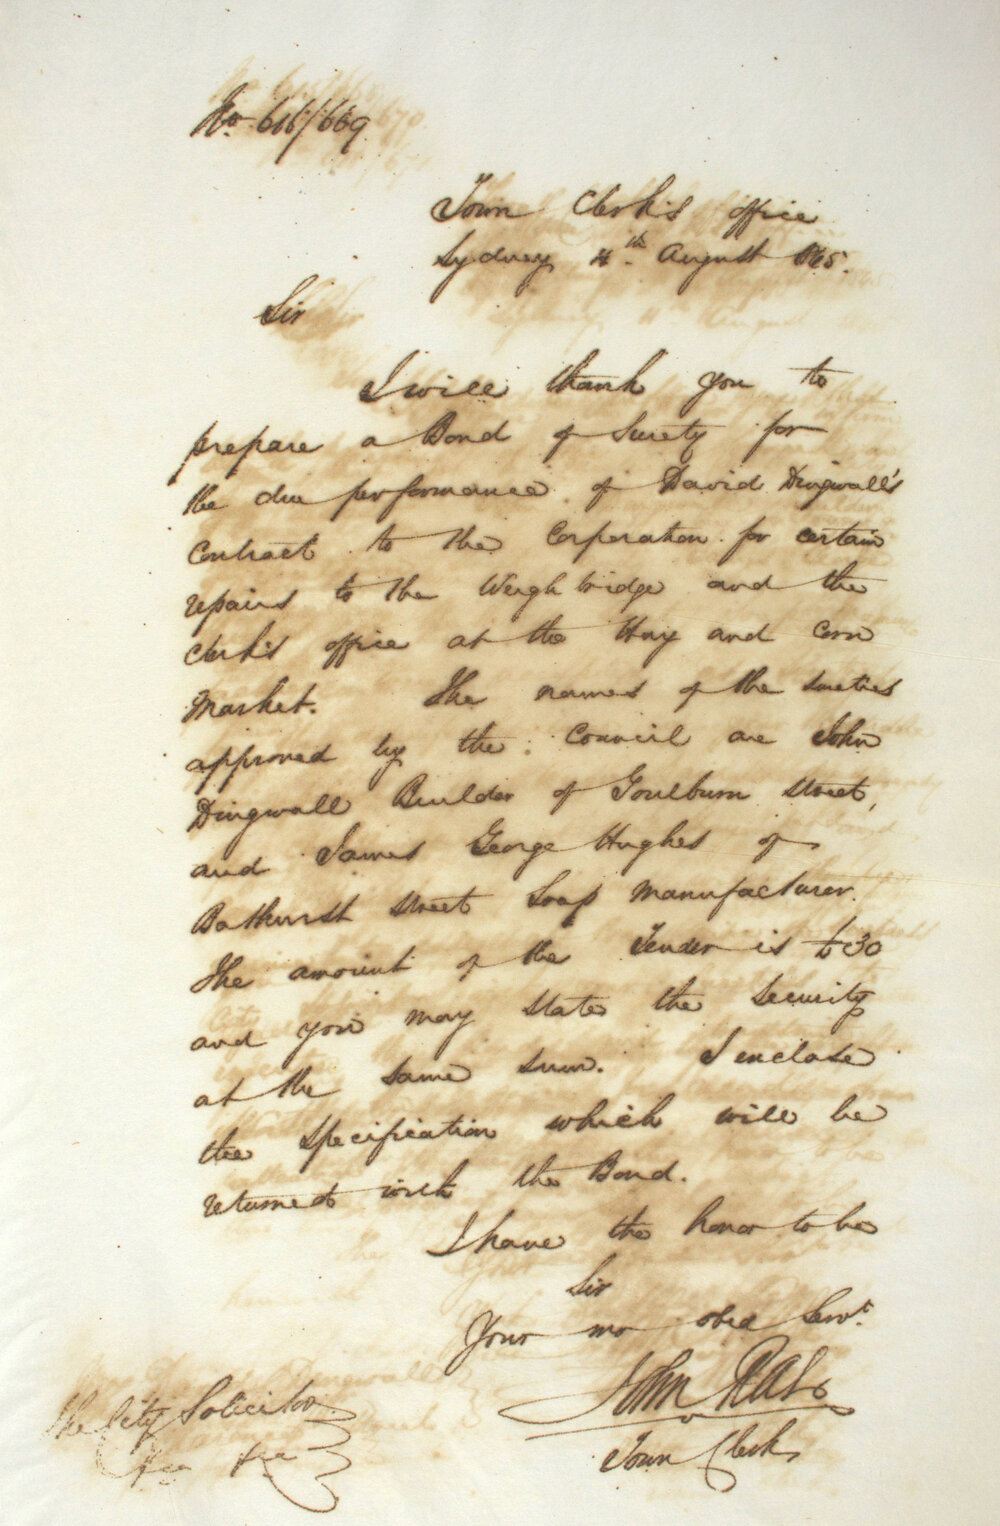 No. 616/669
Town Clerk's office
Sydney 4th August 1865.
Sir
I will thank you to
prepare a Bond of Surety for
the due performance of David Dingwall's
Contract to the Corporation for certain
repairs to the Weigh bridge and the
Clerk's office at the Hay and Corn
Market. The names of the sureties
approved by the Council are John
Dingwall Builder of Goulburn Street,
and James George Hughes of
Bathurst Street Soap Manufacturer.
The amount of the Tender is £30
and you may state the security
at the same sum. I enclose
the specification which will be
returned with the Bond.
I have the honor to be
Sir
Your mo obed Servt.
John Rae
Town Clerk
The City Solicitor
&c &c